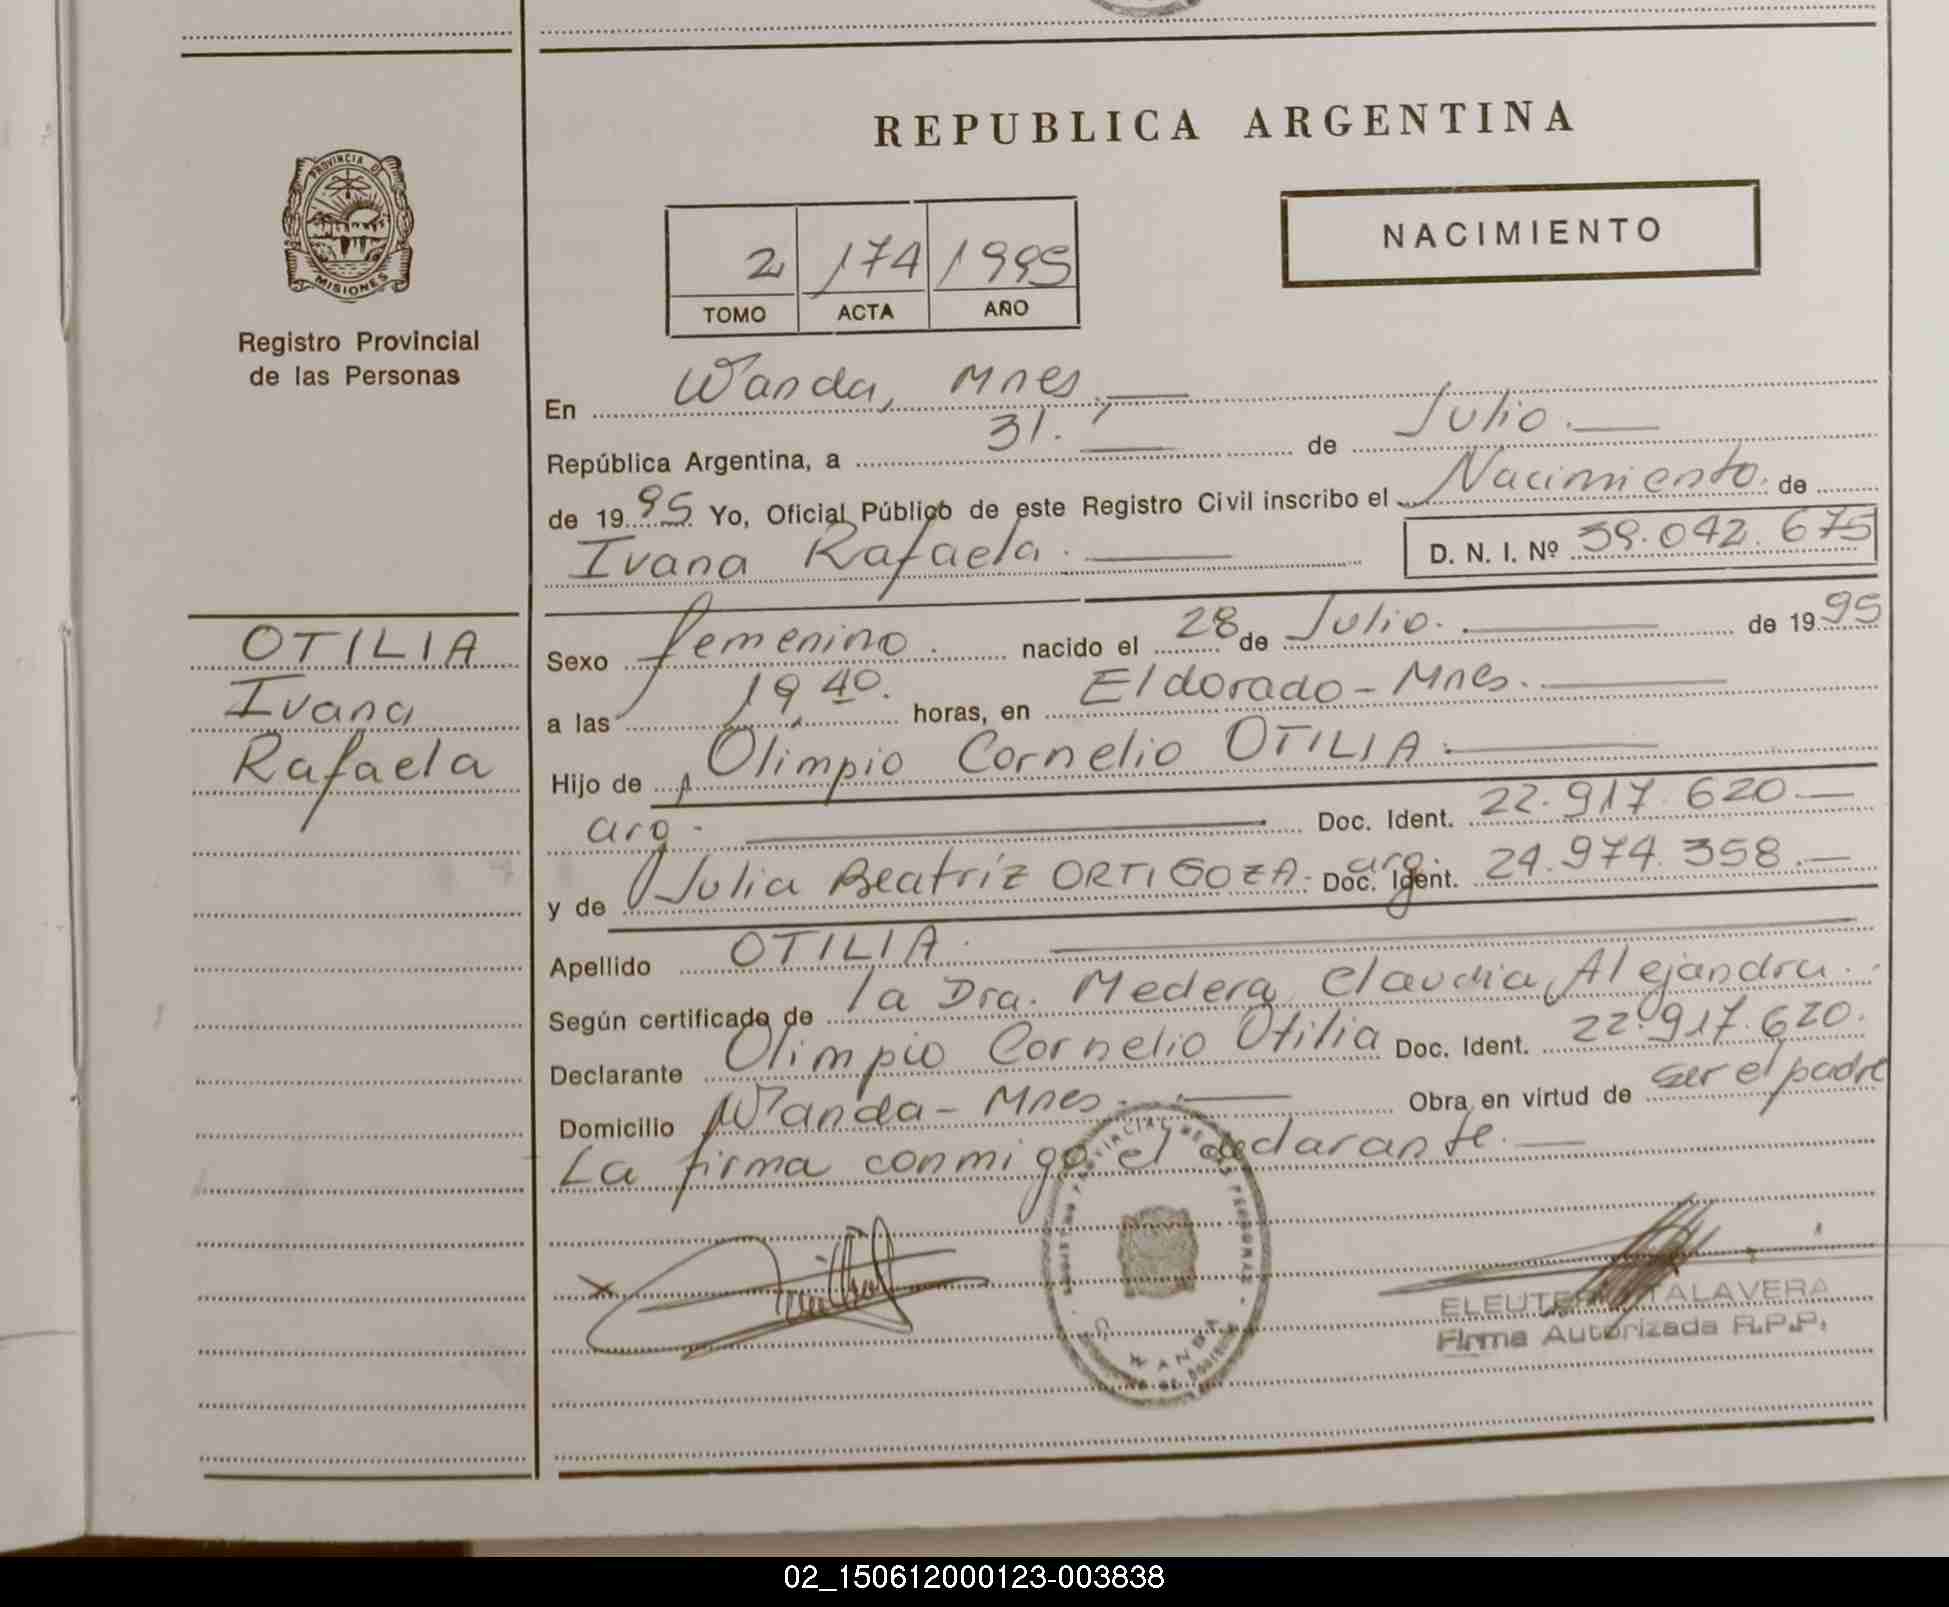 REPUBLICA ARGENTINA
PROVINCIA DE
MISIONES
Registro Provincial
de las Personas
NACIMIENTO
2 174 1995
TOMO ACTA AÑO
En Wanda, Mnes.
República Argentina, a 31. de Julio.
de 1995 Yo, Oficial Público de este Registro Civil inscribo el Nacimiento. de
Ivana Rafaela. D. N. I. Nº 39.042.675
OTILIA
Ivana
Rafaela
Sexo femenino. nacido el 28 de Julio. de 1995
a las 19,40. horas, en Eldorado - Mnes.
Hijo de Olimpio Cornelio OTILIA.
arg. Doc. Ident. 22.917.620.
y de Julia Beatriz ORTIGOZA - arg. Doc. Ident. 24.974.358.
Apellido OTILIA.
Según certificado de la Dra. Medera, Claudia Alejandra.
Declarante Olimpio Cornelio Otilia Doc. Ident. 22.917.620.
Domicilio Wanda - Mnes. Obra en virtud de ser el padre
La firma conmigo el declarante.
WANDA
ELEUTERIO TALAVERA
Firma Autorizada R.P.P.
02_150612000123-003838